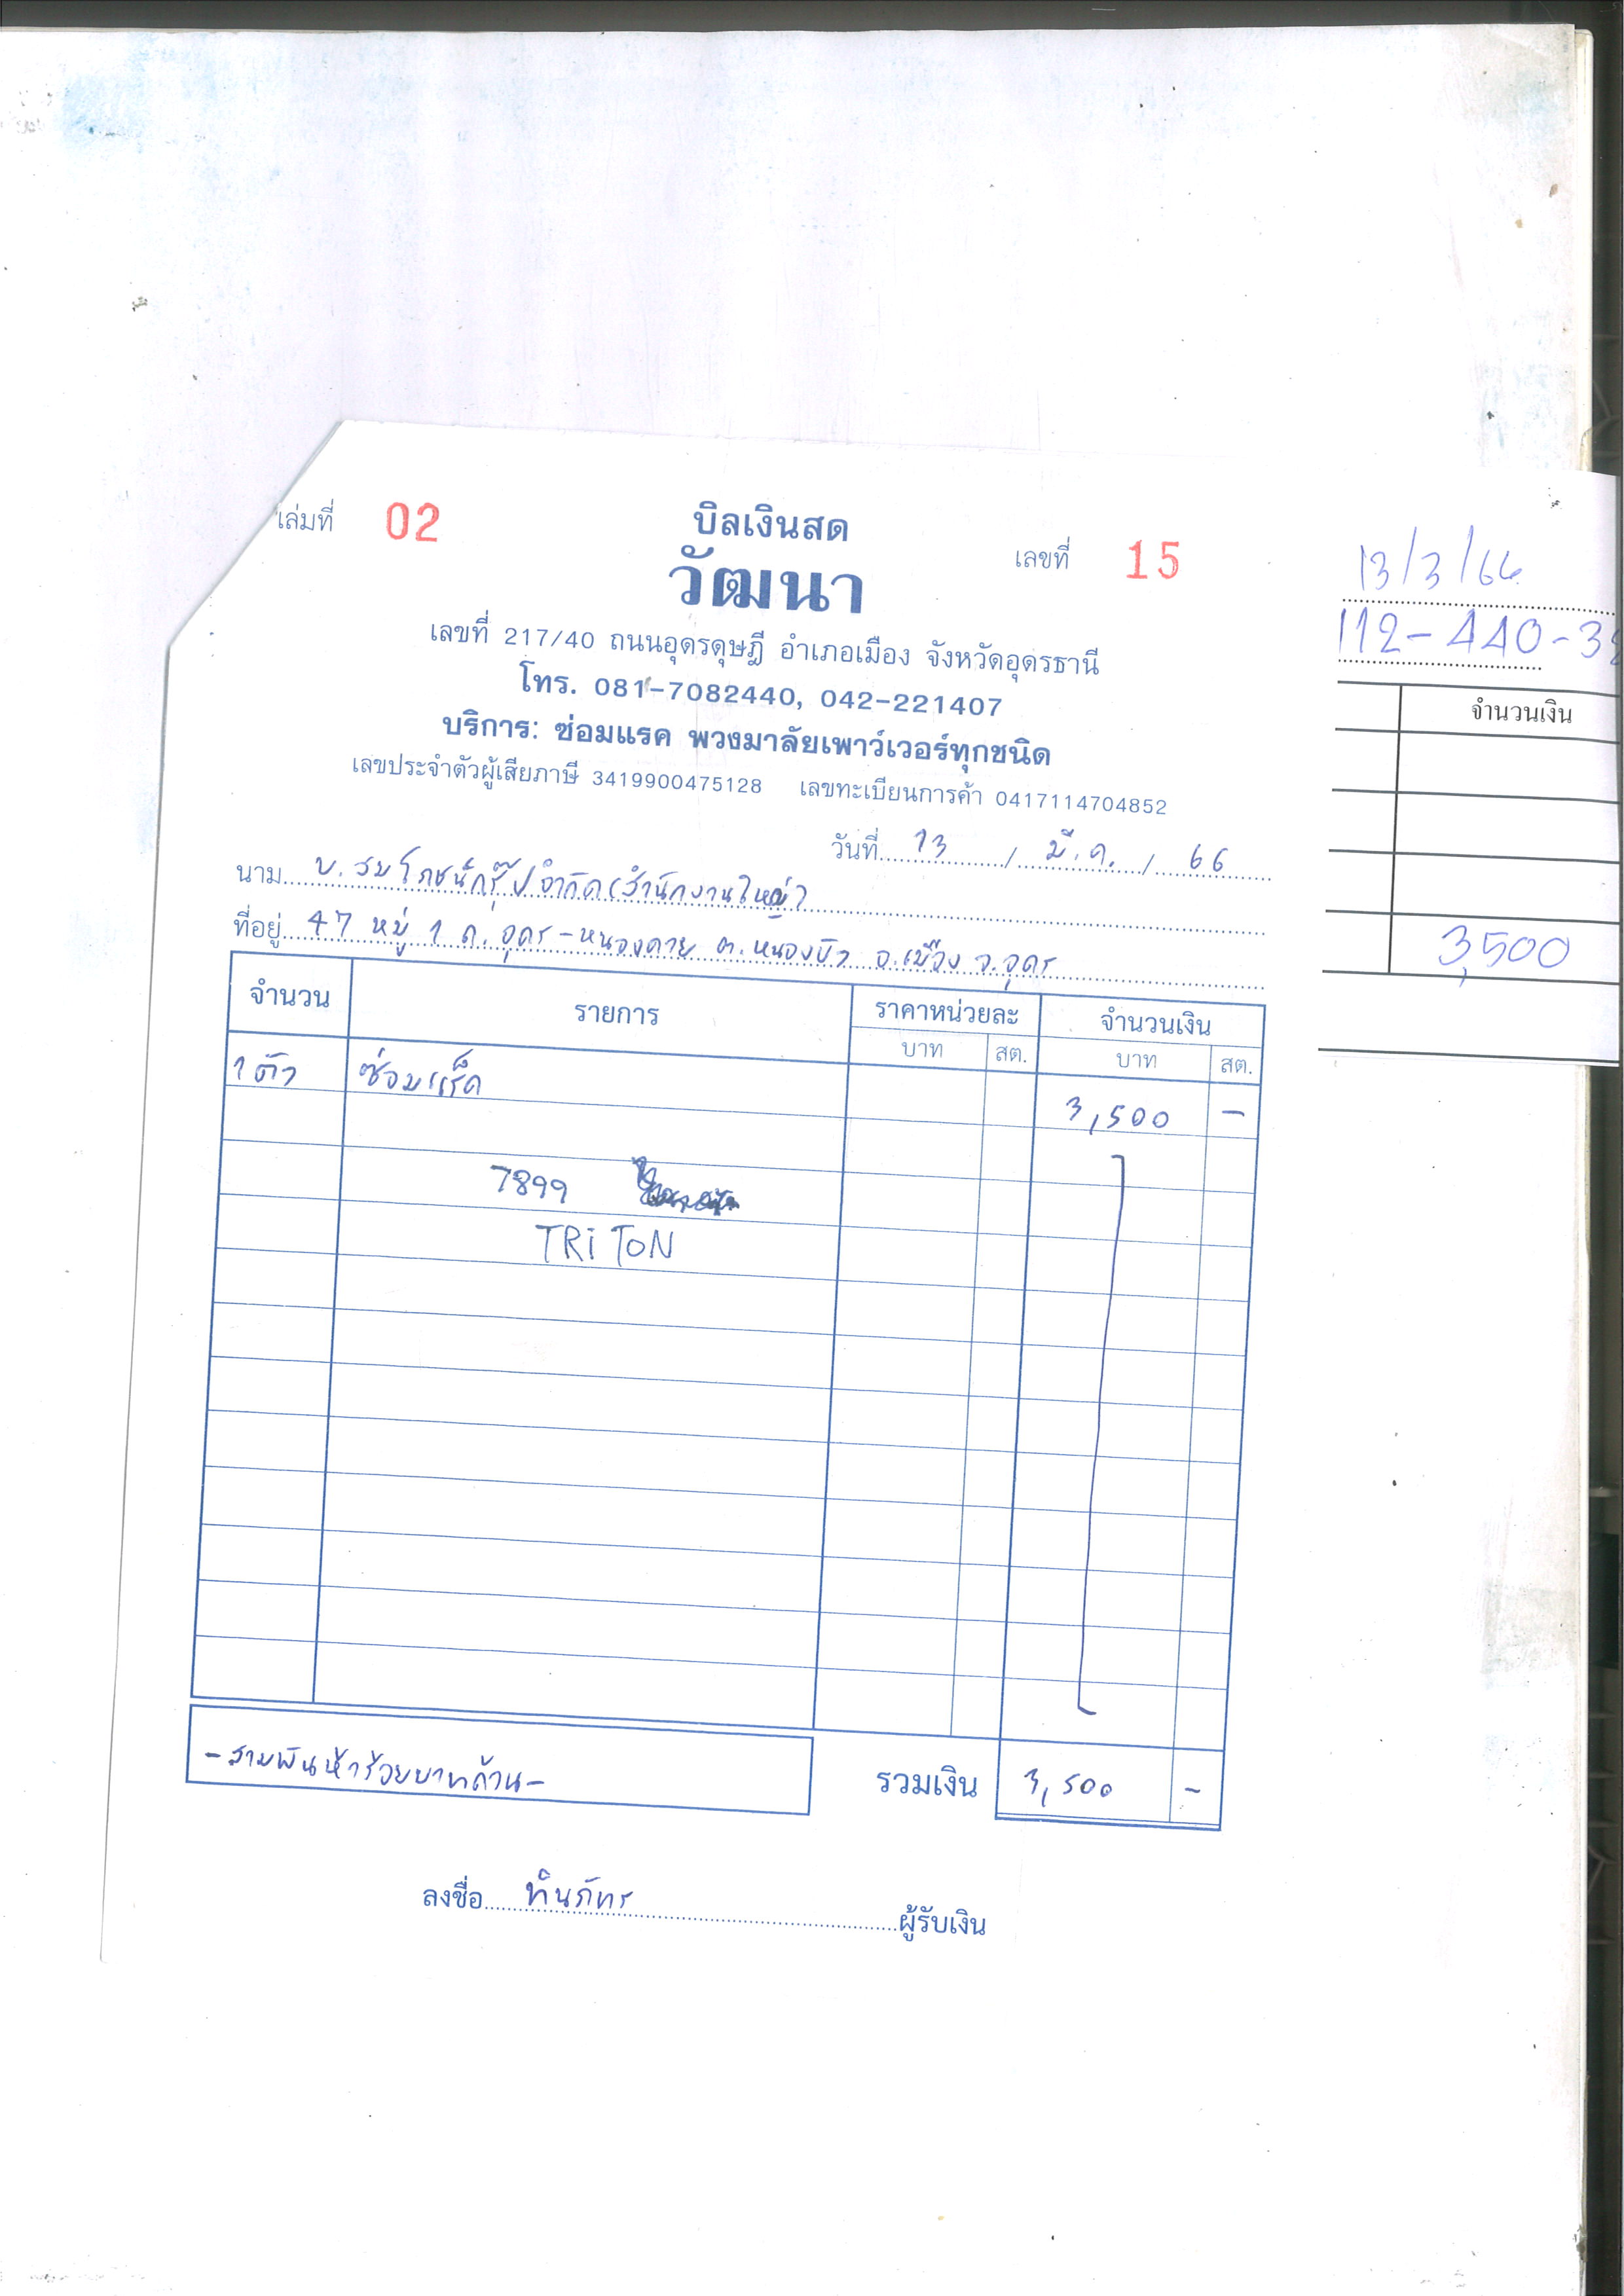 เล่มที่ 02
บิลเงินสด
เลขที่ 15
วัฒนา
เลขที่ 217/40 ถนนอุดรดุษฎี อำเภอเมือง จังหวัดอุดรธานี
โทร. 081-7082440, 042-221407
บริการ: ซ่อมแรค พวงมาลัยเพาว์เวอร์ทุกชนิด
เลขประจำตัวผู้เสียภาษี 3419900475128 เลขทะเบียนการค้า 0417114704852
วันที่ 13 / มี.ค. / 66
นาม บ.สมโภชน์กรุ๊ป จำกัด (สำนักงานใหญ่)
ที่อยู่ 47 หมู่ 1 ถ.อุดร-หนองคาย ต.หนองบัว อ.เมือง จ.อุดร
จำนวน รายการ ราคาหน่วยละ จำนวนเงิน
บาท สต. บาท สต.
1 ตัว ซ่อมแร็ค 3,500 -
7899
TRiToN
-สามพันห้าร้อยบาทถ้วน-
รวมเงิน 3,500 -
ลงชื่อ ผู้รับเงิน
13/3/66
112-440-3
จำนวนเงิน
3,500